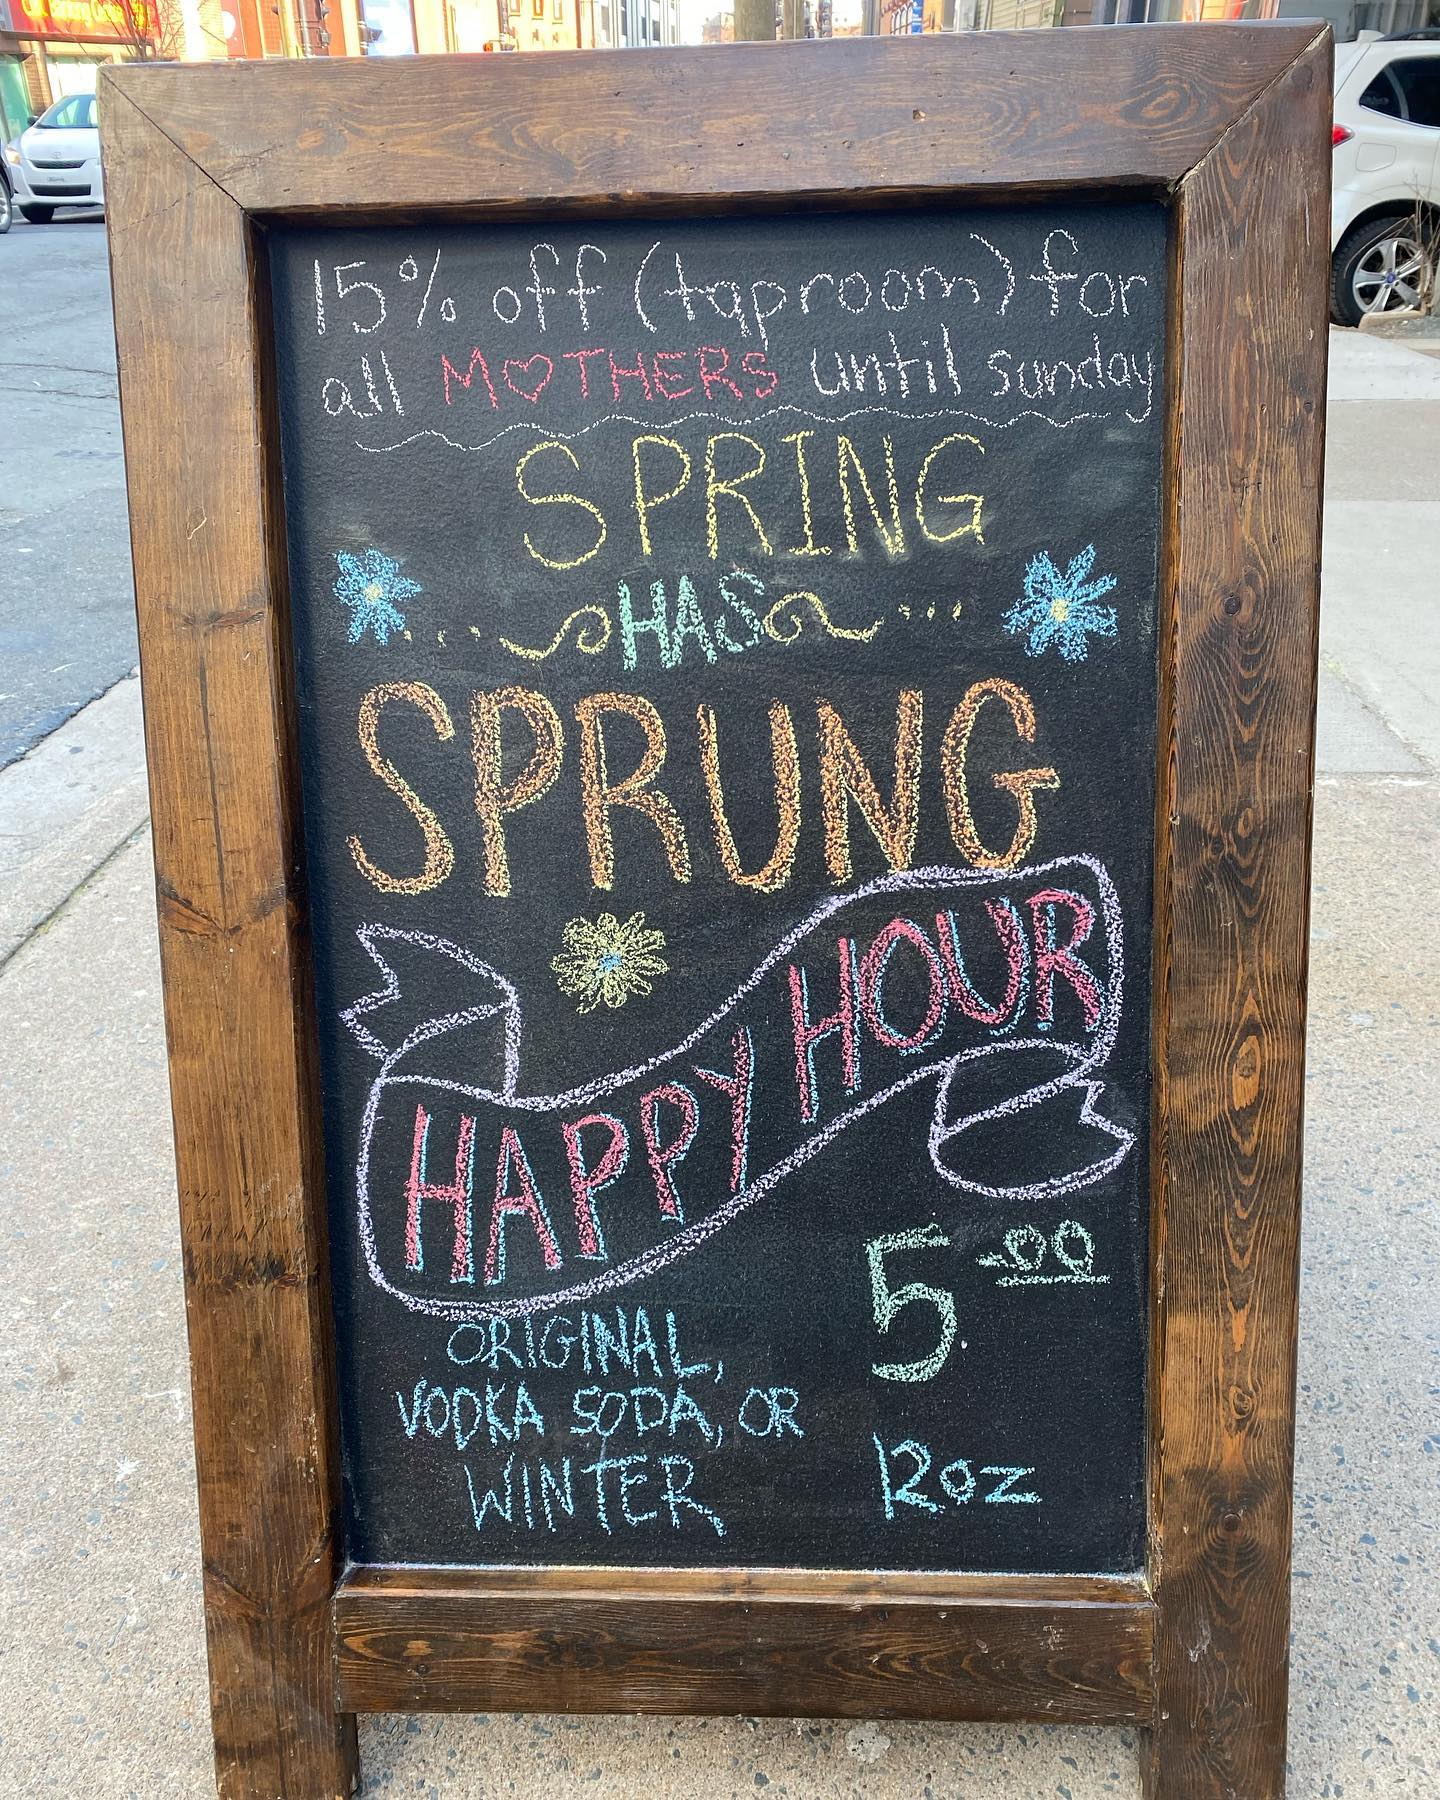 15% off (taproom) for
all M♡THERS until sunday
SPRING
HAS
SPRUNG
HAPPY HOUR
5.00
ORIGINAL,
VODKA SODA, OR
WINTER
12oz